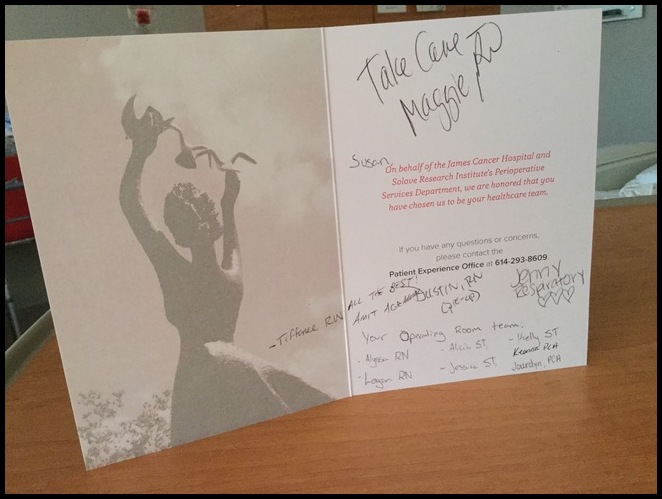 Take Care
Maggie PT
Susan,
On behalf of the James Cancer Hospital and
Solove Research Institute's Perioperative
Services Department, we are honored that you
have chosen us to be your healthcare team.
If you have any questions or concerns,
please contact the
Patient Experience Office at 614-293-8609.
ALL THE BEST!
AMIT
DUSTIN, RN
(PRE-OP)
Jenny
RESPIRATORY
- Tiffanee RN
Your Operating Room team:
- Alyssa RN
- Alicia ST
- Kelly ST
Keanna PCA
- Logan RN
- Jessica ST
Jourdyn, PCA